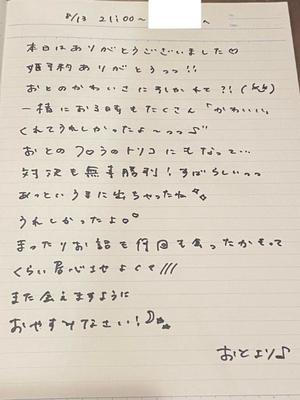 8/13 21:00〜 へ
本日はありがとうございました♡
姫予約ありがとうっっ!!
おとのかわいさにひかれて?!
一緒にお3時もたくさん「かわいい」
くれてうれしかったよ〜っっ♪
おとのフロうのトリコにもなって…
対決も無事勝利!すばらしいっっ
あっという間に出ちゃったね
うれしかったよ。
まったりお話も何回も会ったかもって
くらい居心地よくて///
また会えますように
おやすみなさい!
おとより♪